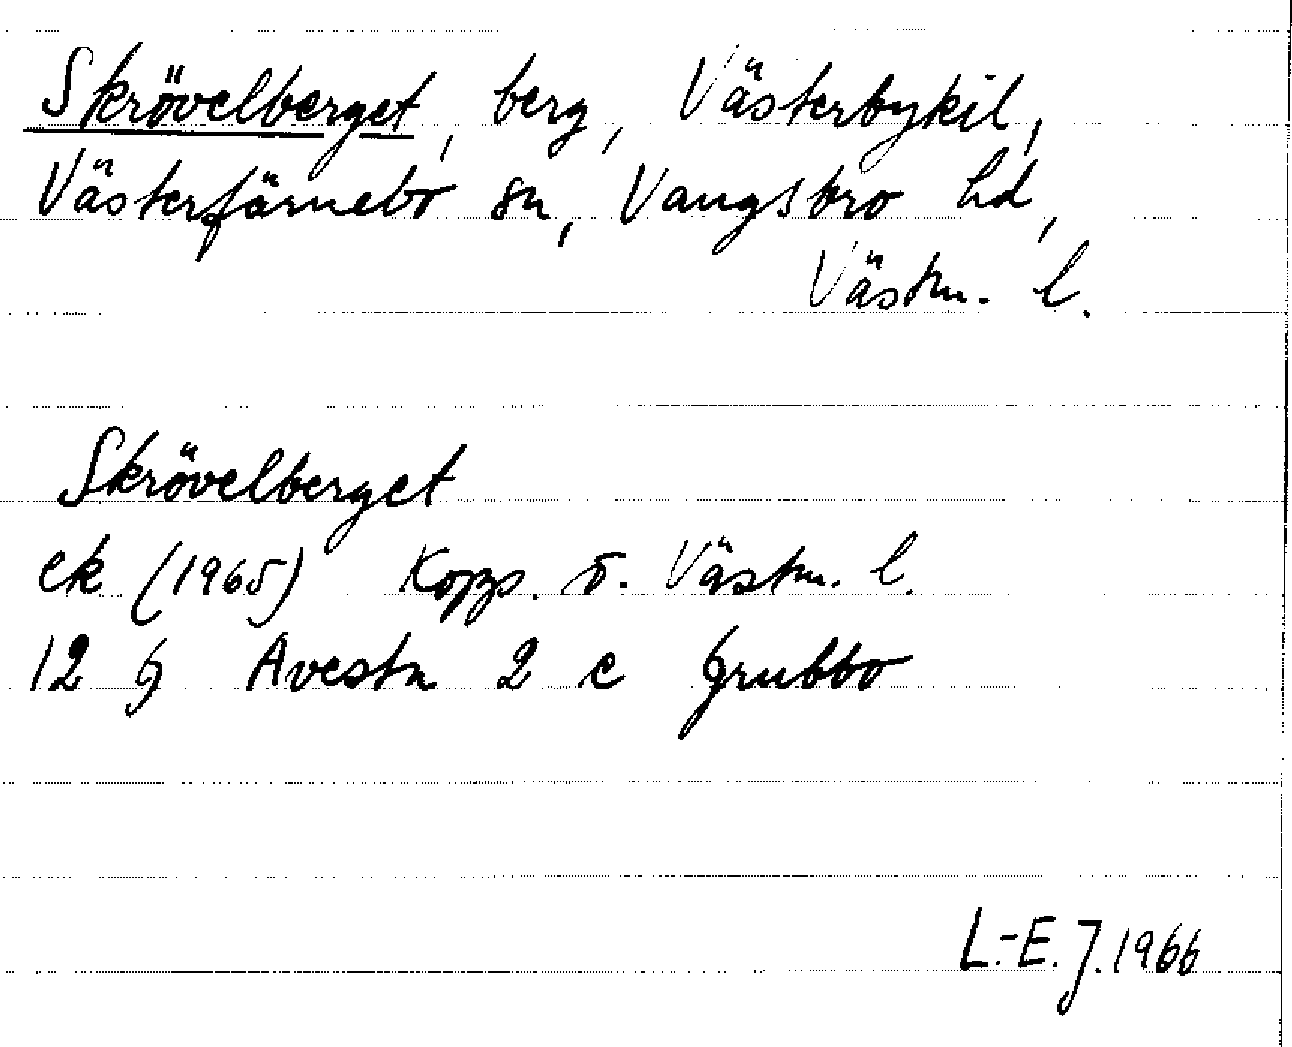 Skrövelberget, berg, Västerbykil,
Västerfärnebo sn, Vangsbro hd,
Västm. l.
Skrövelberget
ek (1965) Kopps. o. Västm. l.
12 G Avesta 2 c Grubbo
L.-E. J. 1966